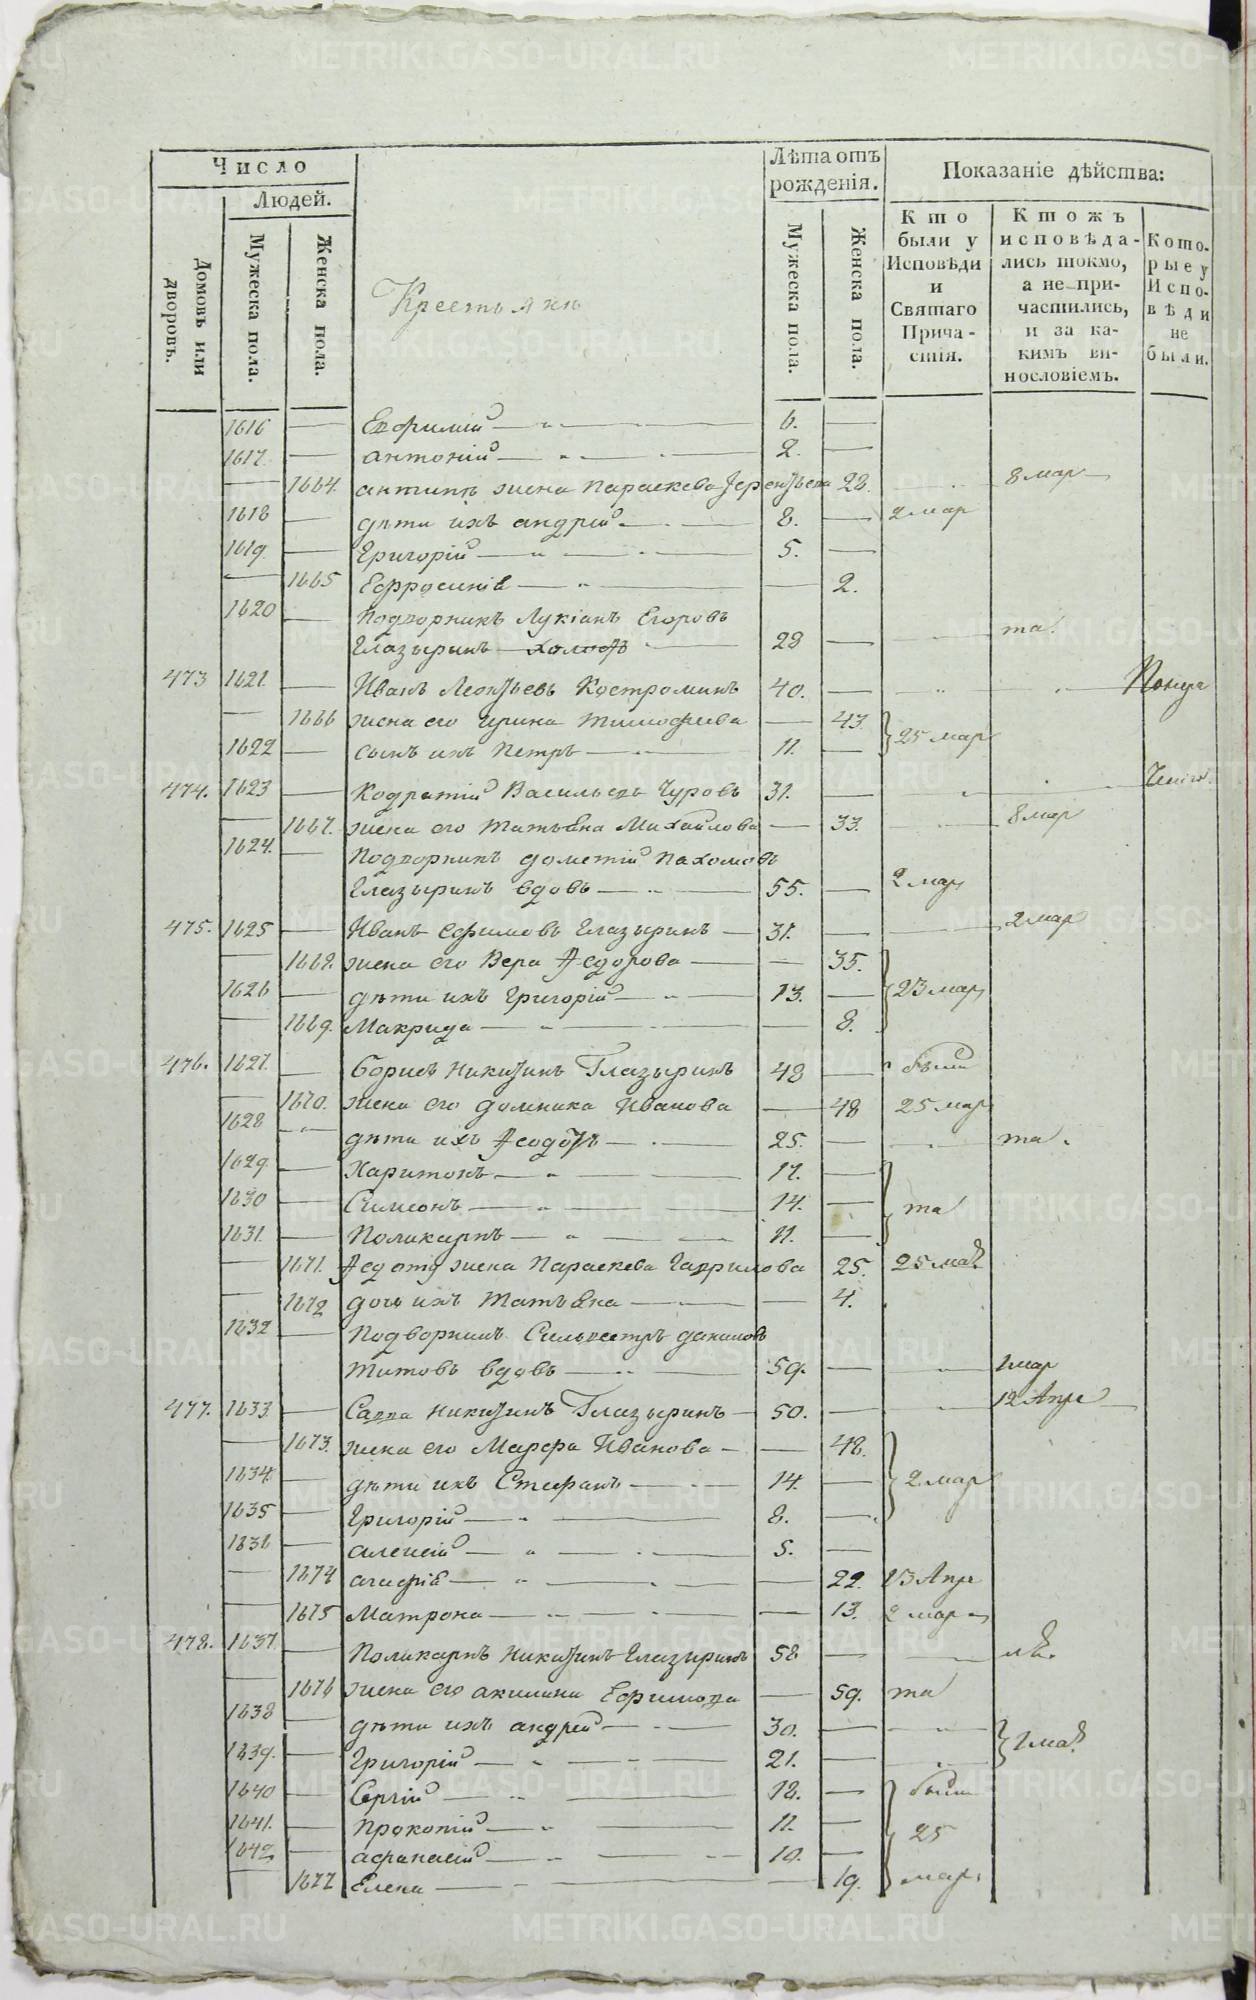 Число
Людей.
Домовъ или дворовъ.
Мужеска пола.
Женска пола.
Крестьяне
Лѣта отъ рожденія.
Мужеска пола.
Женска пола.
Показаніе дѣйства:
Кто были у Исповѣди и Святаго Прича-стія.
Ктожъ исповѣда-лись токмо, а не при-частились, и за ка-кимъ ви-нословіемъ.
Кото-рые у Испо-вѣди не были.
1616 — Евфимій — 6. —
1617. — антоній — 2. —
— 1664. антипъ жена Параскева Терентьева 28. 8 мар
1618 — дѣти ихъ андрей — 8. — 2 мар
1619. — Григорій — 5. —
— 1665 Ефросинія — — 2.
1620 — Подворникъ Лукіанъ Егоровъ
Глазыринъ — холостъ — 28 — та.
473 1621. — Иванъ Леонтьевъ Костроминъ 40. —
— 1666 жена его ирина тимофеева — 43.
1622 — сынъ ихъ Петръ — 11. — 25 мар
474. 1623 — Кодратій Васильевъ Чуровъ 31. —
— 1667. жена его Татьяна Михайлова — 33. 8 мар
1624. — Подворникъ дометій пахомовъ
Глазыринъ вдовъ — 55. — 2 мар
475. 1625 — Иванъ Ефимовъ Глазыринъ — 37. — 2 мар
— 1668. жена его Вера Ѳедорова — 35.
1626 — дѣти ихъ Григорій — 13. — 23 мар
— 1669. Макрида — — 8.
476. 1627. — борисъ никитинъ Глазыринъ 48 — были
— 1670. жена его домника Иванова — 48 25 мар
1628 — дѣти ихъ Ѳедотъ — 25. — та.
1629 — Харитонъ — 17. —
1630 — Симеонъ — 14. — та
1631. — Поликарпъ — 11. —
— 1671. Ѳедота жена Параскева Гаврилова 25. 25 мар
— 1672 дочь ихъ Татьяна — — 4.
1632 — Подворникъ Сильвестръ даниловъ
титовъ вдовъ — 59. — 2 мар
477. 1633. — Савва никитинъ Глазыринъ — 50. — 12 Апре
— 1673. жена его Марфа Иванова — — 48.
1634. — дѣти ихъ Стефанъ — 14. — 2 мар
1635 — Григорій — 8. —
1636 — алексій — 5. —
— 1674 агафія — — 22. 13 Апре
— 1675 Матрона — — 13. 2 мар
478. 1637. — Поликарпъ никитинъ Глазыринъ 58 —
— 1676 жена его акилина Ефимова — 59. та
1638 — дѣти ихъ андрей — 30. —
1639. — Григорій — 21. — 2 мар
1640 — Сергій — 18. — были
1641. — Прокопій — 11. — 25
1642 — афанасій — 10. —
— 1677 Елена — — 19. мар.
METRIKI.GASO-URAL.RU